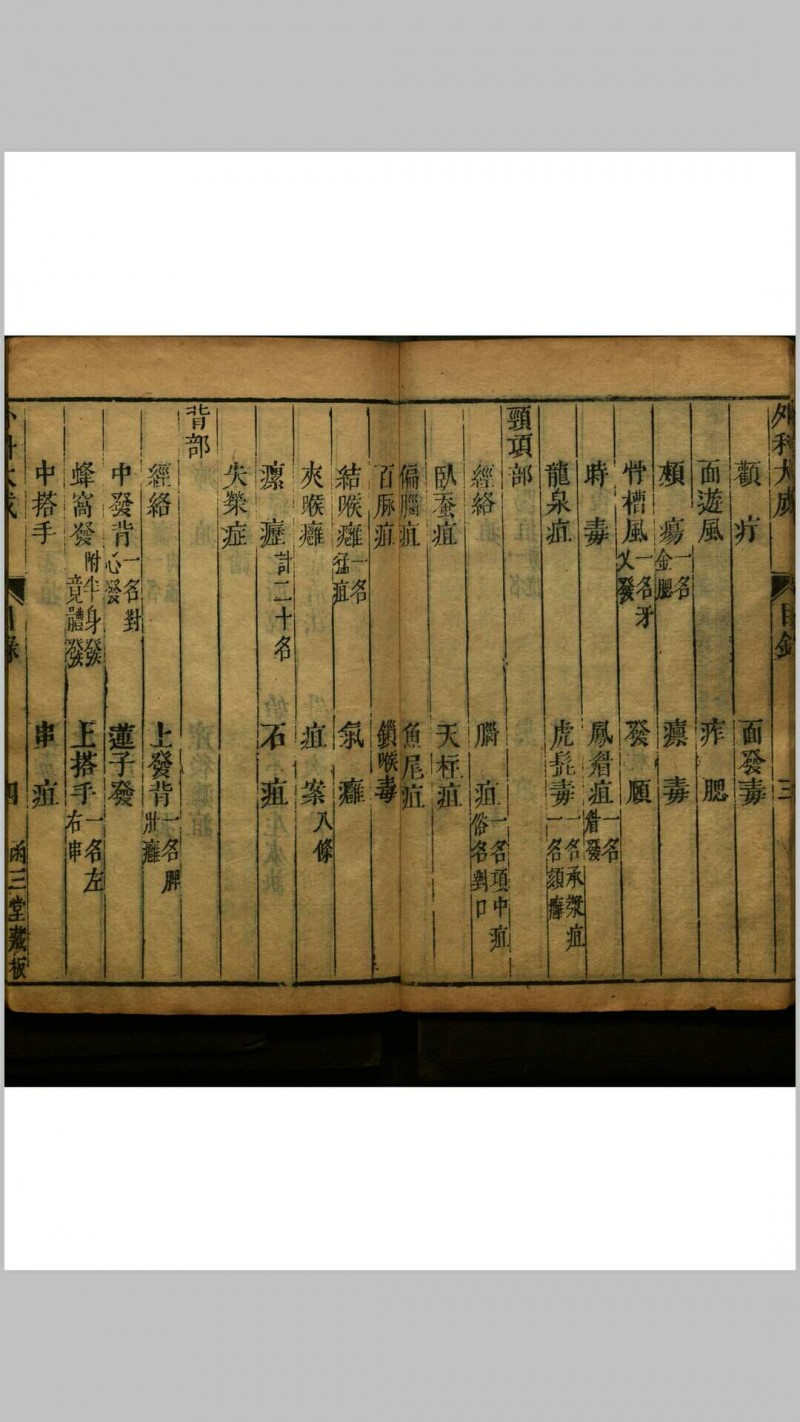 外科大成 目錄 三
顴疔 面發毒
面遊風 痄腮
頰瘍一名金腮 瘭毒
骨槽風一名牙叉發 發頤
時毒 鳳眉疽一名眉發
龍泉疽 虎髭毒一名承漿疽一名頦癰
頸項部
經絡 腦疽一名項中疽俗名對口
臥蚕疽 天柱疽
偏腦疽 魚尾疽
百脉疽 鎖喉毒
結喉癰一名猛疽 氣癰
夾喉癰 疽案八條
瘰癧計二十名 石疽
失榮症
背部
經絡 上發背一名脾肚癰
中發背一名對心發 蓮子發
蜂窩發附半身發竟體發 上搭手一名左右串
中搭手 串疽
外科大成 目錄 四 函三堂藏板